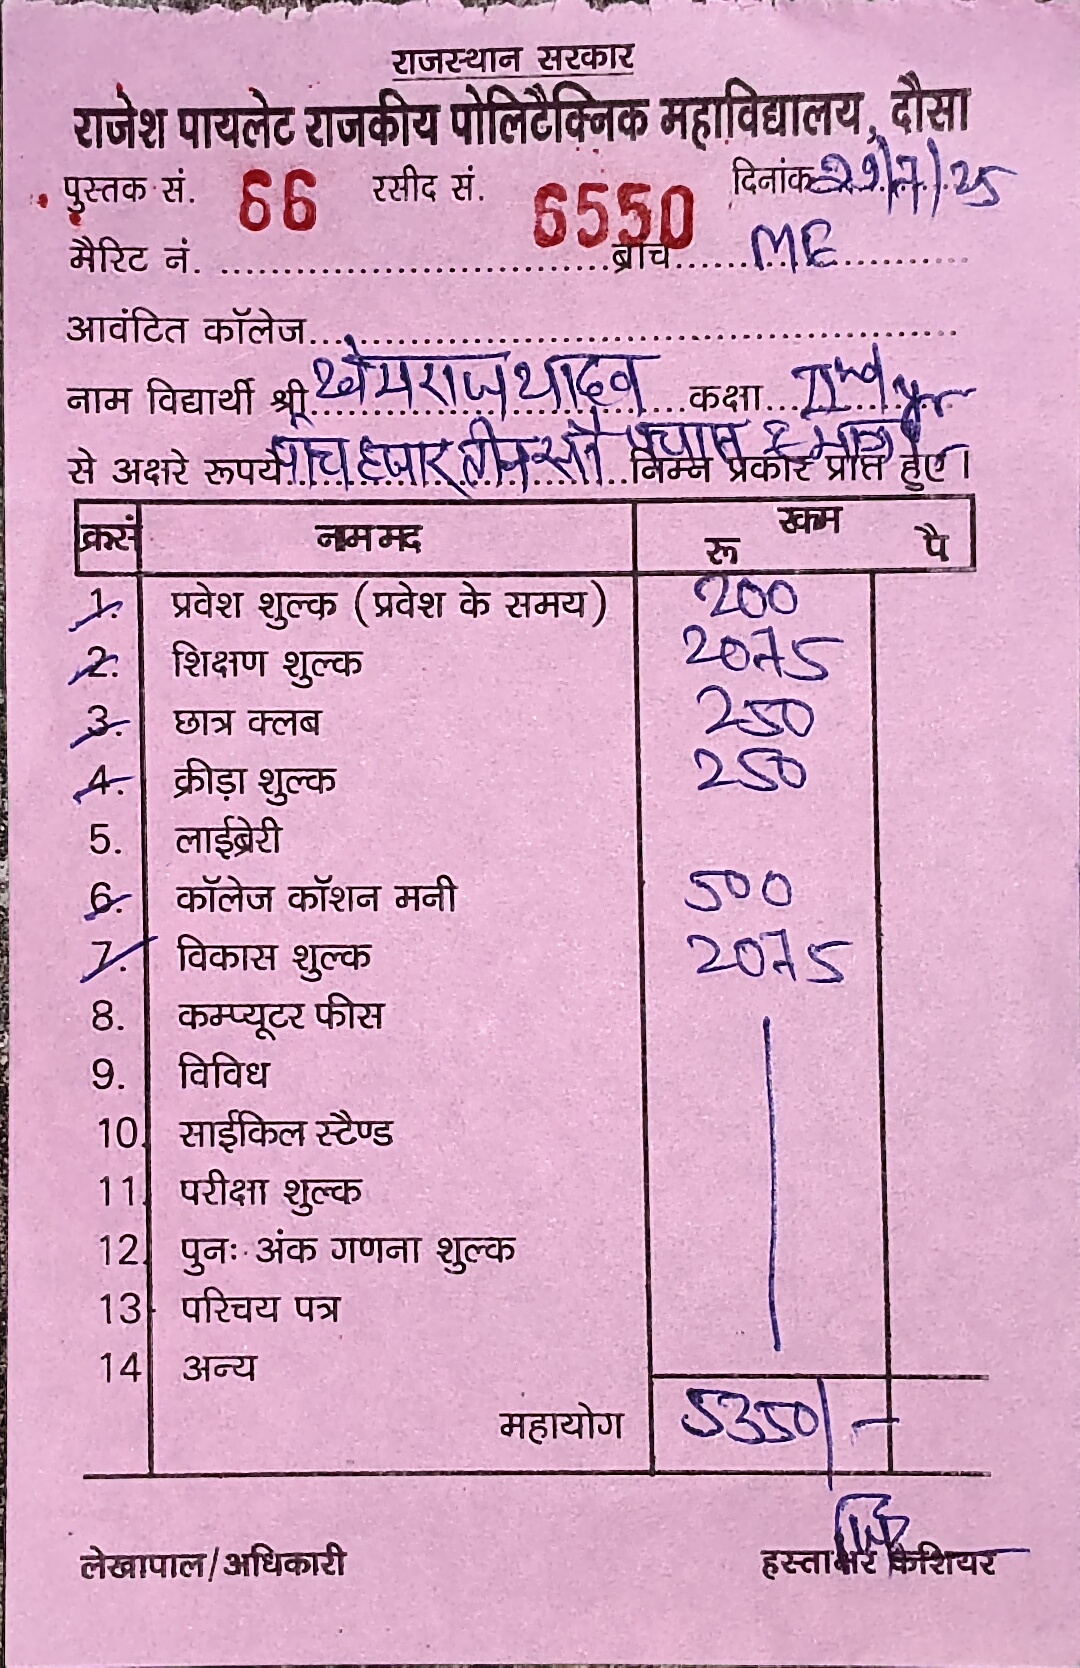 राजस्थान सरकार
राजेश पायलेट राजकीय पोलिटैक्निक महाविद्यालय, दौसा
पुस्तक सं. 66 रसीद सं. 6550 दिनांक 29/7/25
मैरिट नं. ............ ब्रांच ME
आवंटित कॉलेज............
नाम विद्यार्थी श्री खेमराज यादव कक्षा IInd yr
से अक्षरे रूपये पांच हजार तीन सौ पचास मात्र निम्न प्रकार प्राप्त हुए।
क्रसं नाम मद रकम
रू पै
1. प्रवेश शुल्क (प्रवेश के समय) 200
2. शिक्षण शुल्क 2075
3. छात्र क्लब 250
4. क्रीड़ा शुल्क 250
5. लाईब्रेरी
6. कॉलेज कॉशन मनी 500
7. विकास शुल्क 2075
8. कम्प्यूटर फीस
9. विविध
10. साईकिल स्टैण्ड
11. परीक्षा शुल्क
12. पुनः अंक गणना शुल्क
13. परिचय पत्र
14 अन्य
महायोग 5350/-
लेखापाल/अधिकारी हस्ताक्षर कैशियर